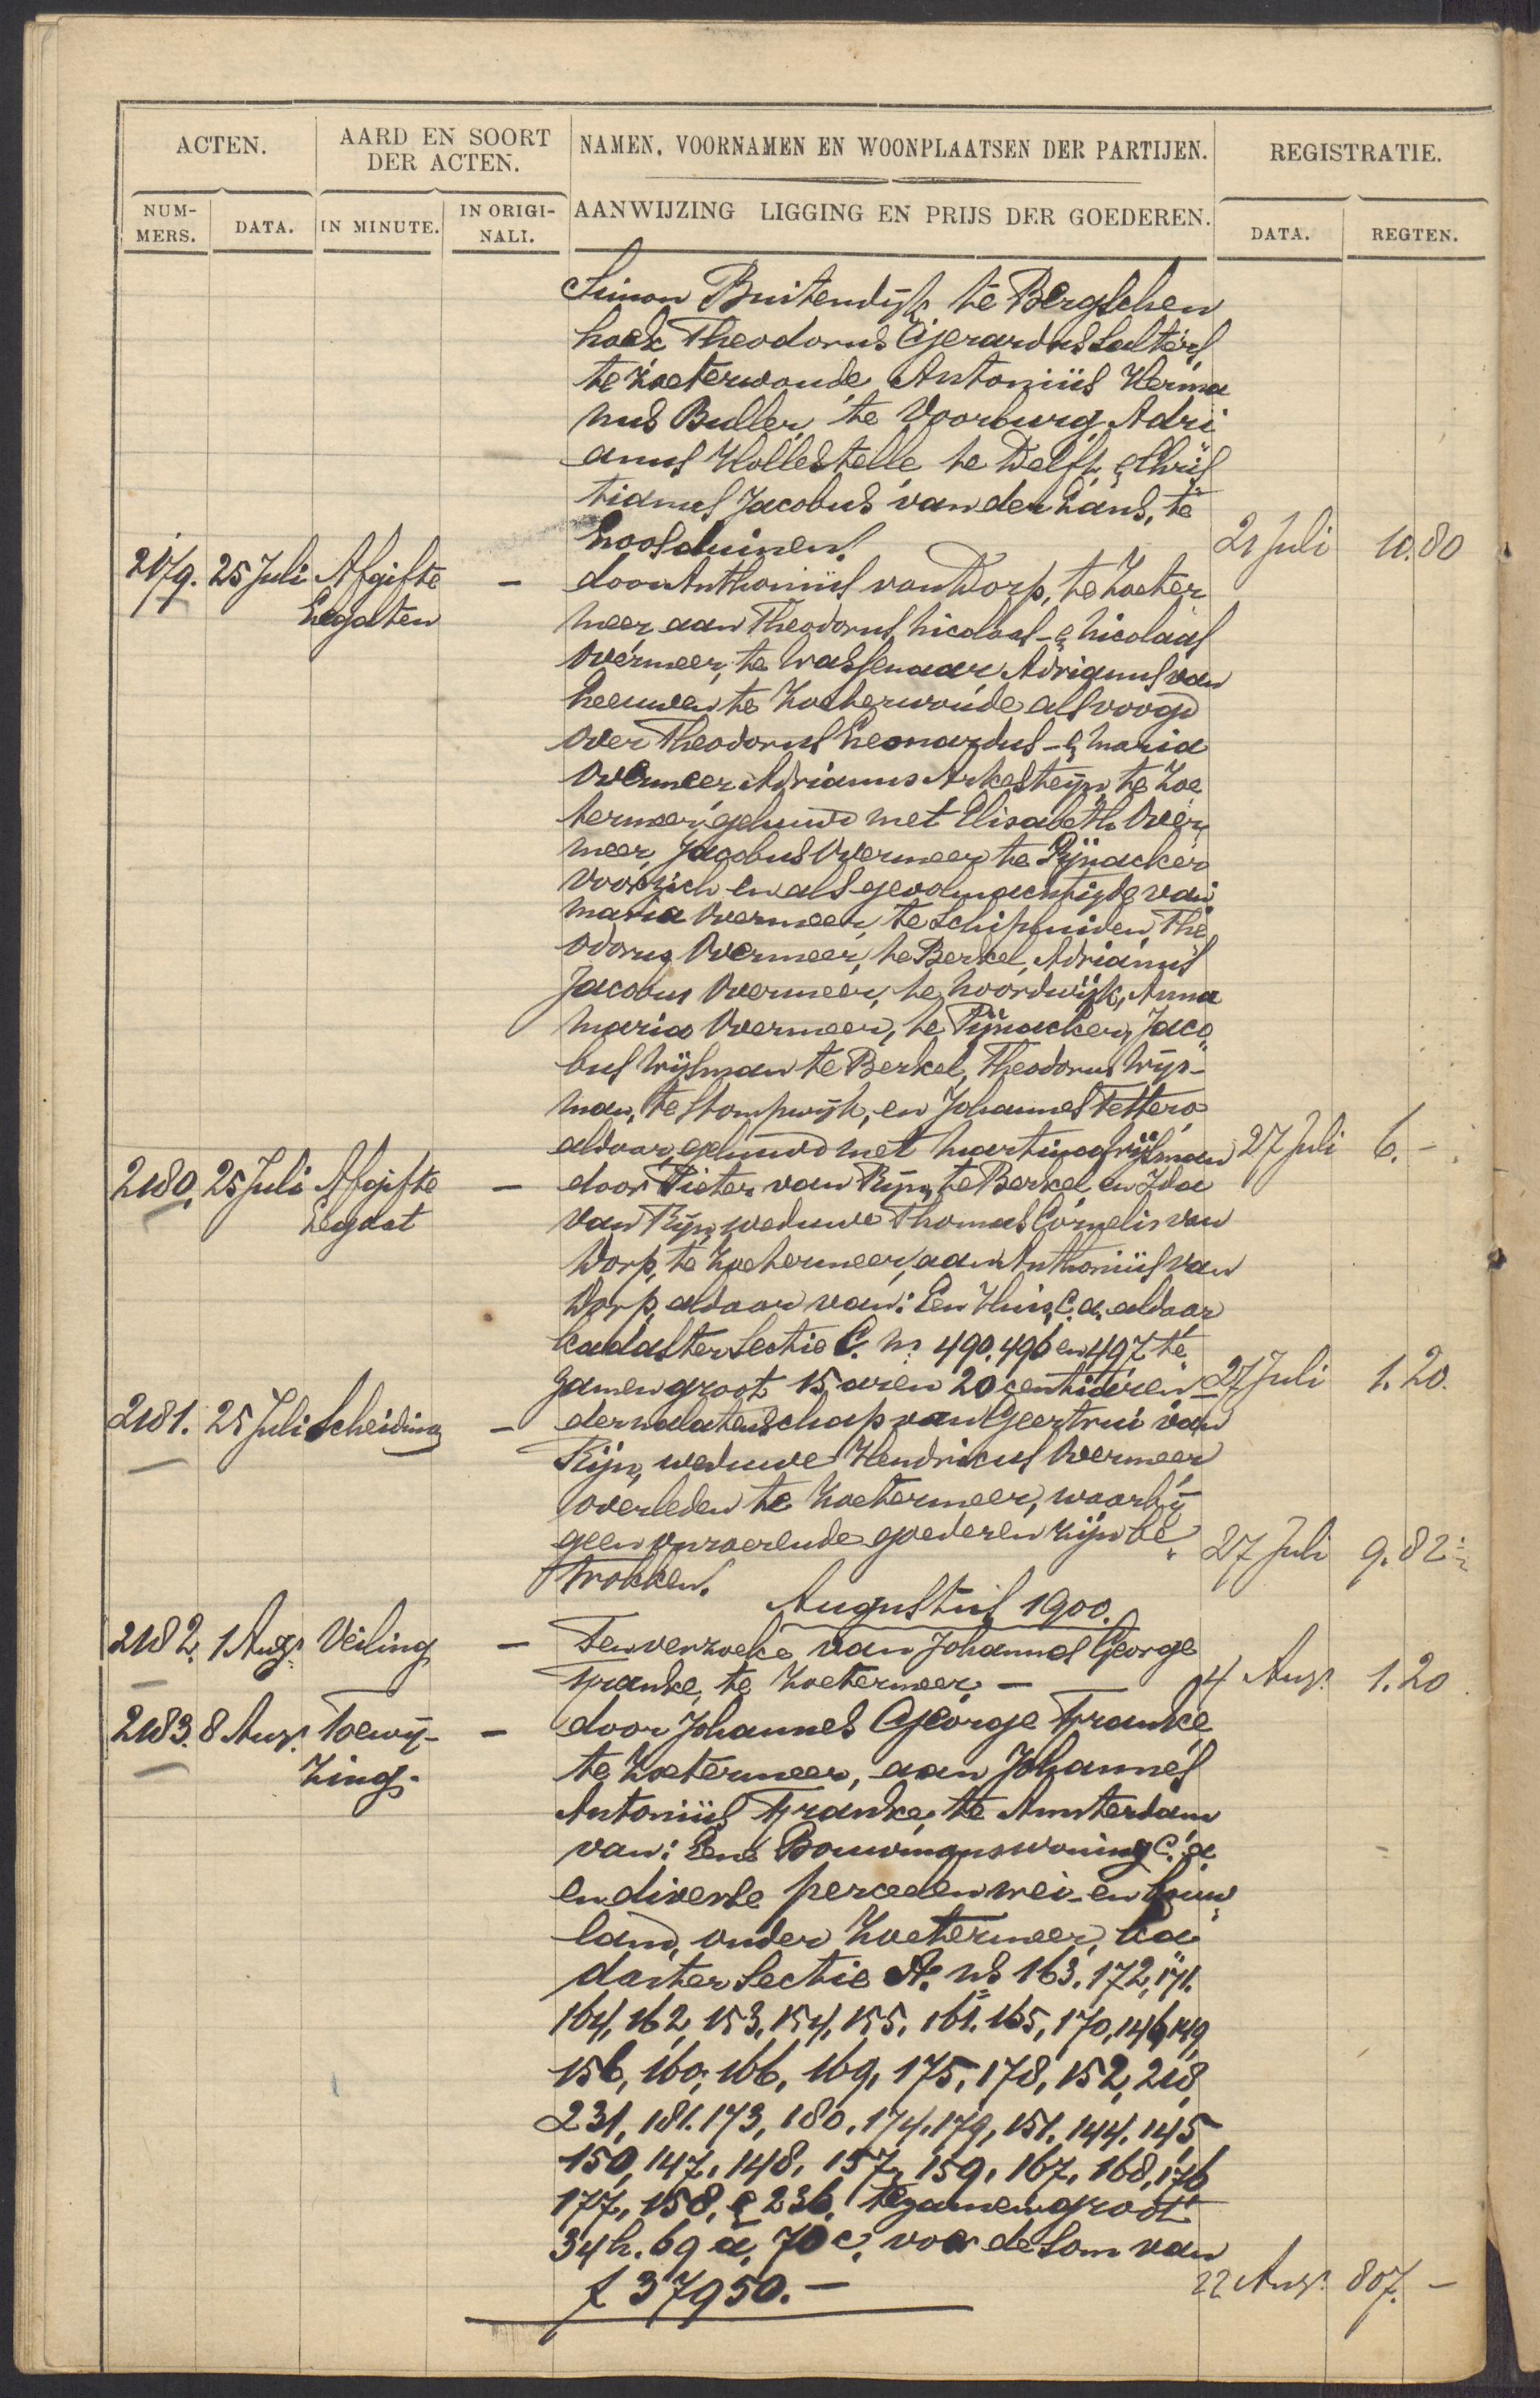 ACTEN.
AARD EN SOORT
DER ACTEN.
NAMEN, VOORNAMEN EN WOONPLAATSEN DER PARTIJEN.
REGISTRATIE.
NUM-
MERS.
DATA.
IN MINUTE.
IN ORIGI-
NALI.
AANWIJZING LIGGING EN PRIJS DER GOEDEREN.
DATA.
REGTEN.
Simon Buitendijk te Bergschen
hoek Theodorus Gerardus Lutters
te Zoeterwoude Antoniüs Herma
nus Buller, te Voorburg Adri
anus Hollestelle te Delft, & Chris
tianus Jacobus van der Lans, te
Loosduinen. 21 Juli 10.80
2179. 25 Juli Afgifte – door Anthoniüs van Dorp, te Zoeter
Legaten meer, aan Theodorus, Nicolaas- & Nicolaas
Overmeer, te Wassenaar, Adrianus van
Leeuwen te Zoeterwoude als voogd
over Theodorus Leonardus- & Maria
Overmeer Adrianus Arkesteijn, te Zoe
termeer, gehuwd met Elisabeth Over
meer, Jacobus Overmeer te Pijnacker
voor zich en als gevolmachtigde van
Maria Overmeer, te Schipluiden, The
odorus Overmeer, te Berkel, Adrianus
Jacobus Overmeer, te Noordwijk, Anna
Maria Overmeer, te Pijnacker, Jaco
bus Wijsman te Berkel, Theodorus Wijs-
man, te Stompwijk, en Johannes Tettero
aldaar, gehuwd met Martina Wijsman 27 Juli 6.–
2180. 25 Juli Afgifte – door Pieter van Rijn, te Berkel en Ida
Legaat van Rijn, weduwe Thomas Cornelis van
Dorp, te Zoetermeer, aan Anthoniüs van
Dorp, aldaar van: Een Huis, c.a. aldaar
kadaster Sectie C. Ns 490. 496 en 497 te
zamen groot 15 aren 20 centiaren – 27 Juli 1.20.
2181. 25 Juli Scheiding – der nalatenschap van Geertrui van
Rijn, weduwe Hendricus Overmeer
overleden te Zoetermeer, waarbij
geen onroerende goederen zijn be 27 Juli 9.82½
trokken.
Augustus 1900.
2182. 1 Aug. Veiling – Ten verzoeke van Johannes George
Franke, te Zoetermeer – 4 Aug. 1.20
2183. 8 Aug. Toewij- – door Johannes George Franke
zing. te Zoetermeer, aan Johannes
Antoniüs Franke, te Amsterdam
van: Eene Bouwmanswoning c.a.
en diverse perceelen wei- en bouw
land, onder Zoetermeer, ka
daster Sectie A. Ns 163. 172, 171.
164, 162, 153, 154, 155, 161. 165, 170, 146, 149,
156, 160, 166, 169, 175, 178, 152, 218,
231, 181. 173, 180, 174, 179, 151. 144. 145
150, 147, 148, 157, 159, 167, 168, 176
177, 158, & 236, tezamen groot
34 h. 69 a, 70 c, voor de som van
f 37950.– 22 Aug. 807.–